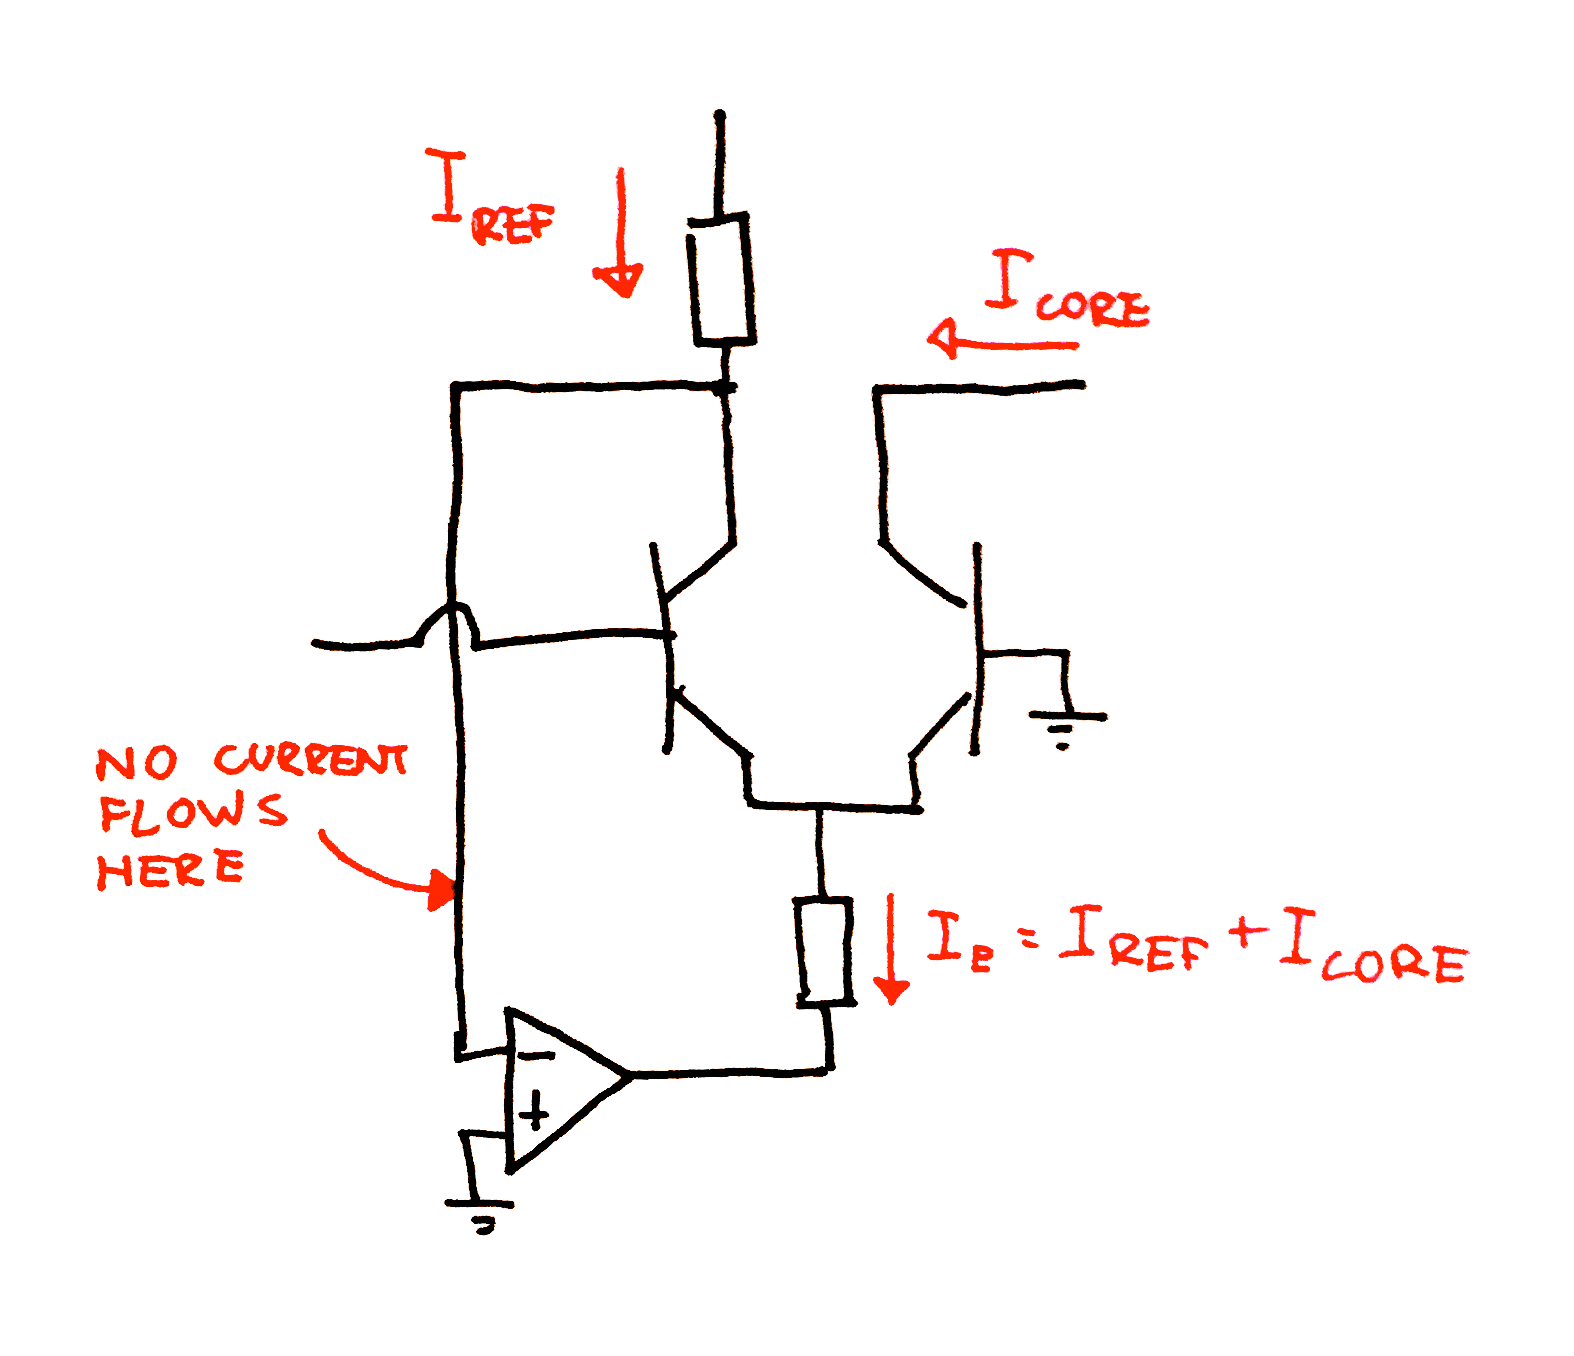 IREF
ICORE
NO CURRENT
FLOWS
HERE
IE = IREF + ICORE
−
+